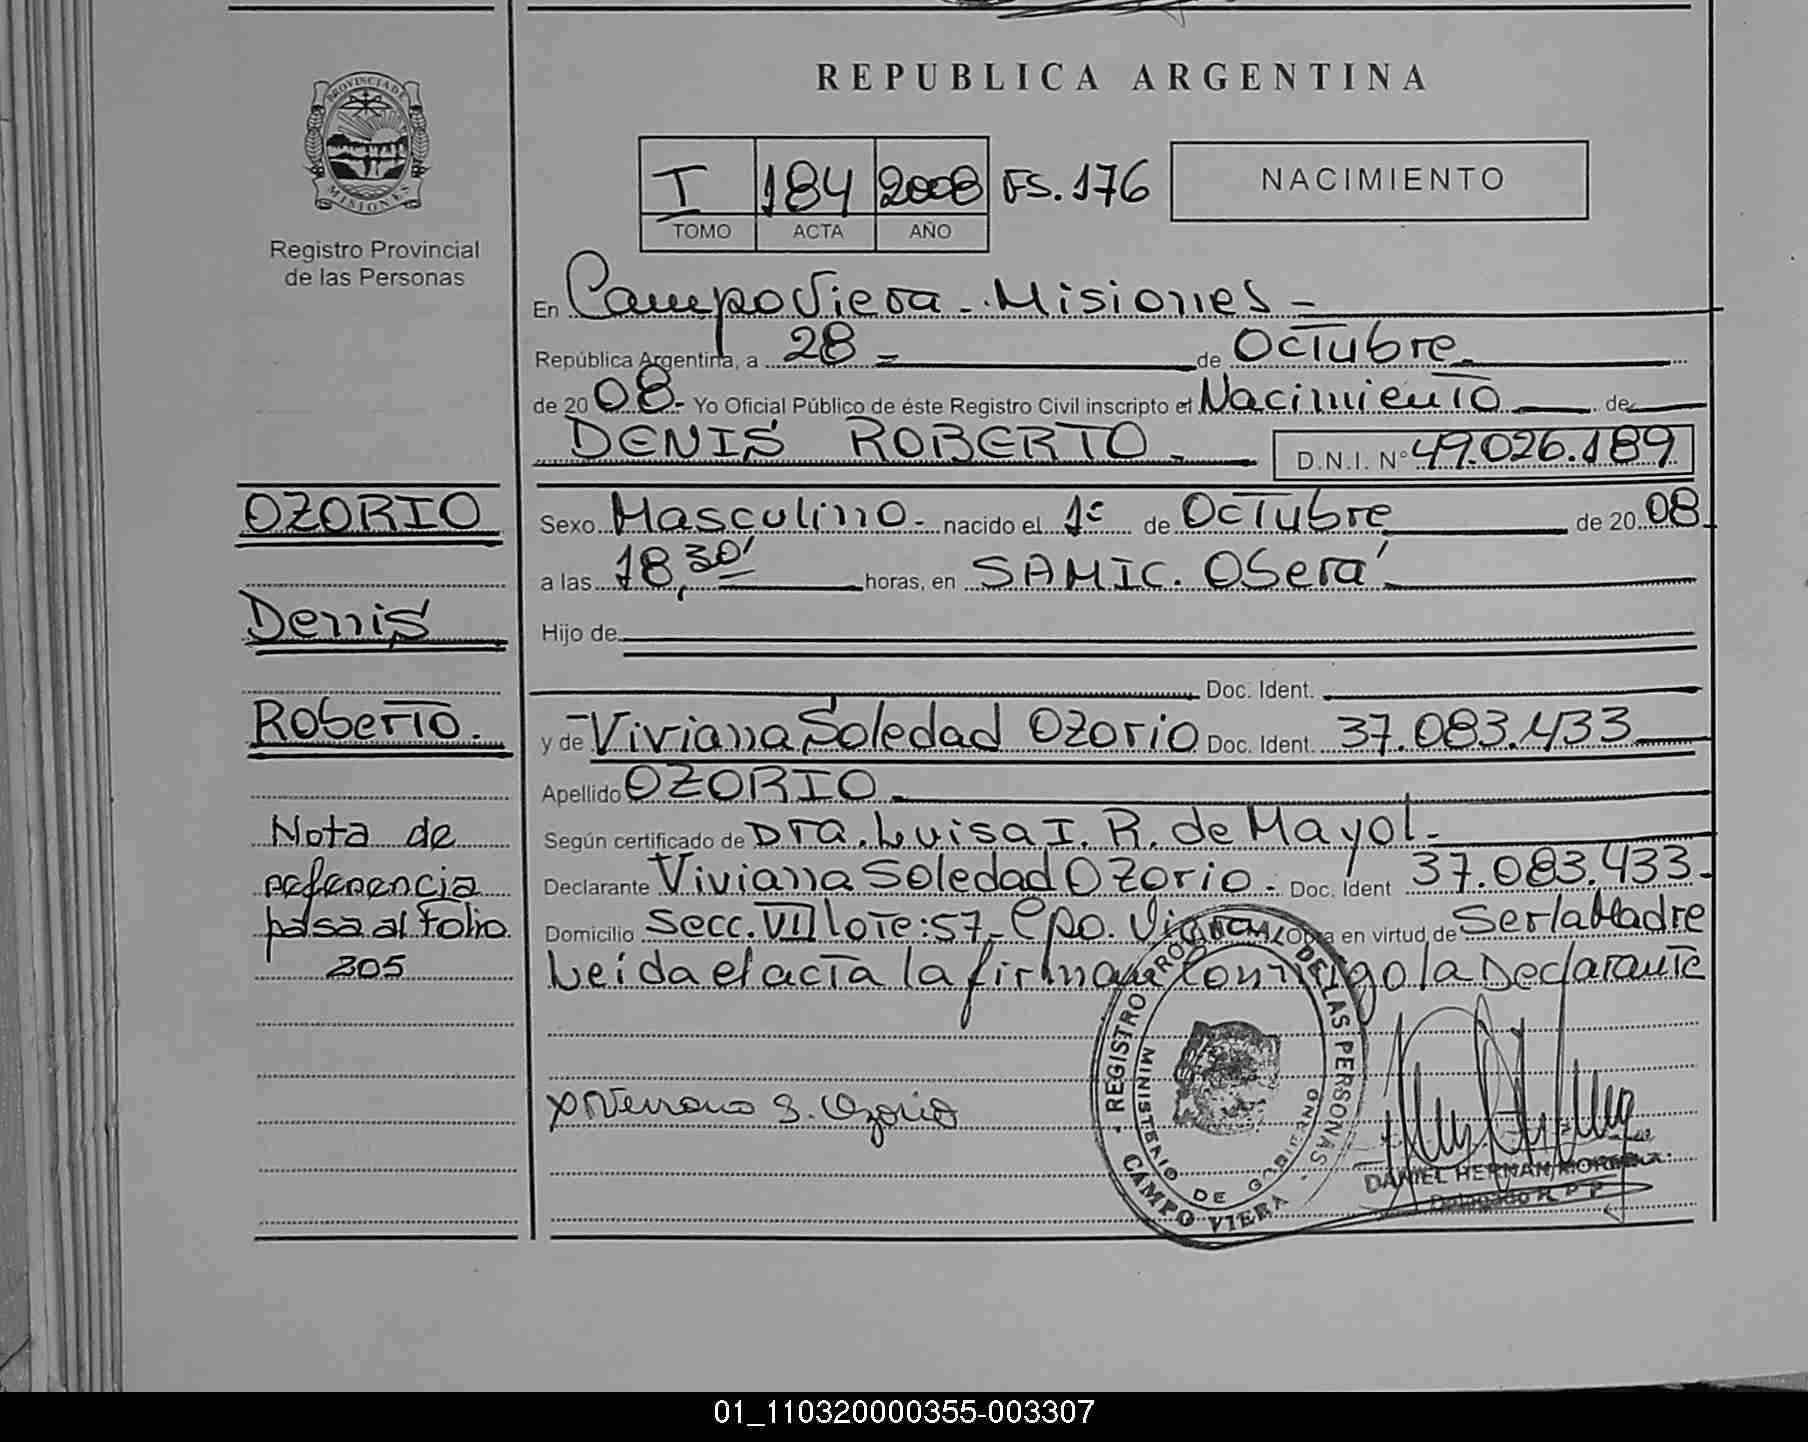 REPUBLICA ARGENTINA
PROVINCIA DE MISIONES
Registro Provincial
de las Personas
I 184 2008 FS. 176
TOMO ACTA AÑO
NACIMIENTO
En Campo Viera - Misiones -
República Argentina, a 28 - de Octubre -
de 2008 - Yo Oficial Público de éste Registro Civil inscripto el Nacimiento de
DENIS ROBERTO - D.N.I. N° 49.026.189
OZORIO
Sexo Masculino - nacido el 1° de Octubre de 2008
a las 18,30' horas, en SAMIC. OSerá
Denis
Hijo de
Doc. Ident.
Roberto.
y de Viviana Soledad Ozorio Doc. Ident. 37.083.433
Apellido OZORIO
Nota de
Según certificado de Dra. Luisa I. R. de Mayol -
referencia
Declarante Viviana Soledad Ozorio - Doc. Ident 37.083.433 -
pasa al Folio
Domicilio Secc. VII lote: 57 - Cpo. Viera en virtud de Ser la Madre
205
Leida el acta la firman conmigo la Declarante
S. Ozorio
REGISTRO PROVINCIAL DE LAS PERSONAS
MINISTERIO DE GOBIERNO
CAMPO VIERA
DANIEL HERNAN
Delegado R. P. P.
01_110320000355-003307